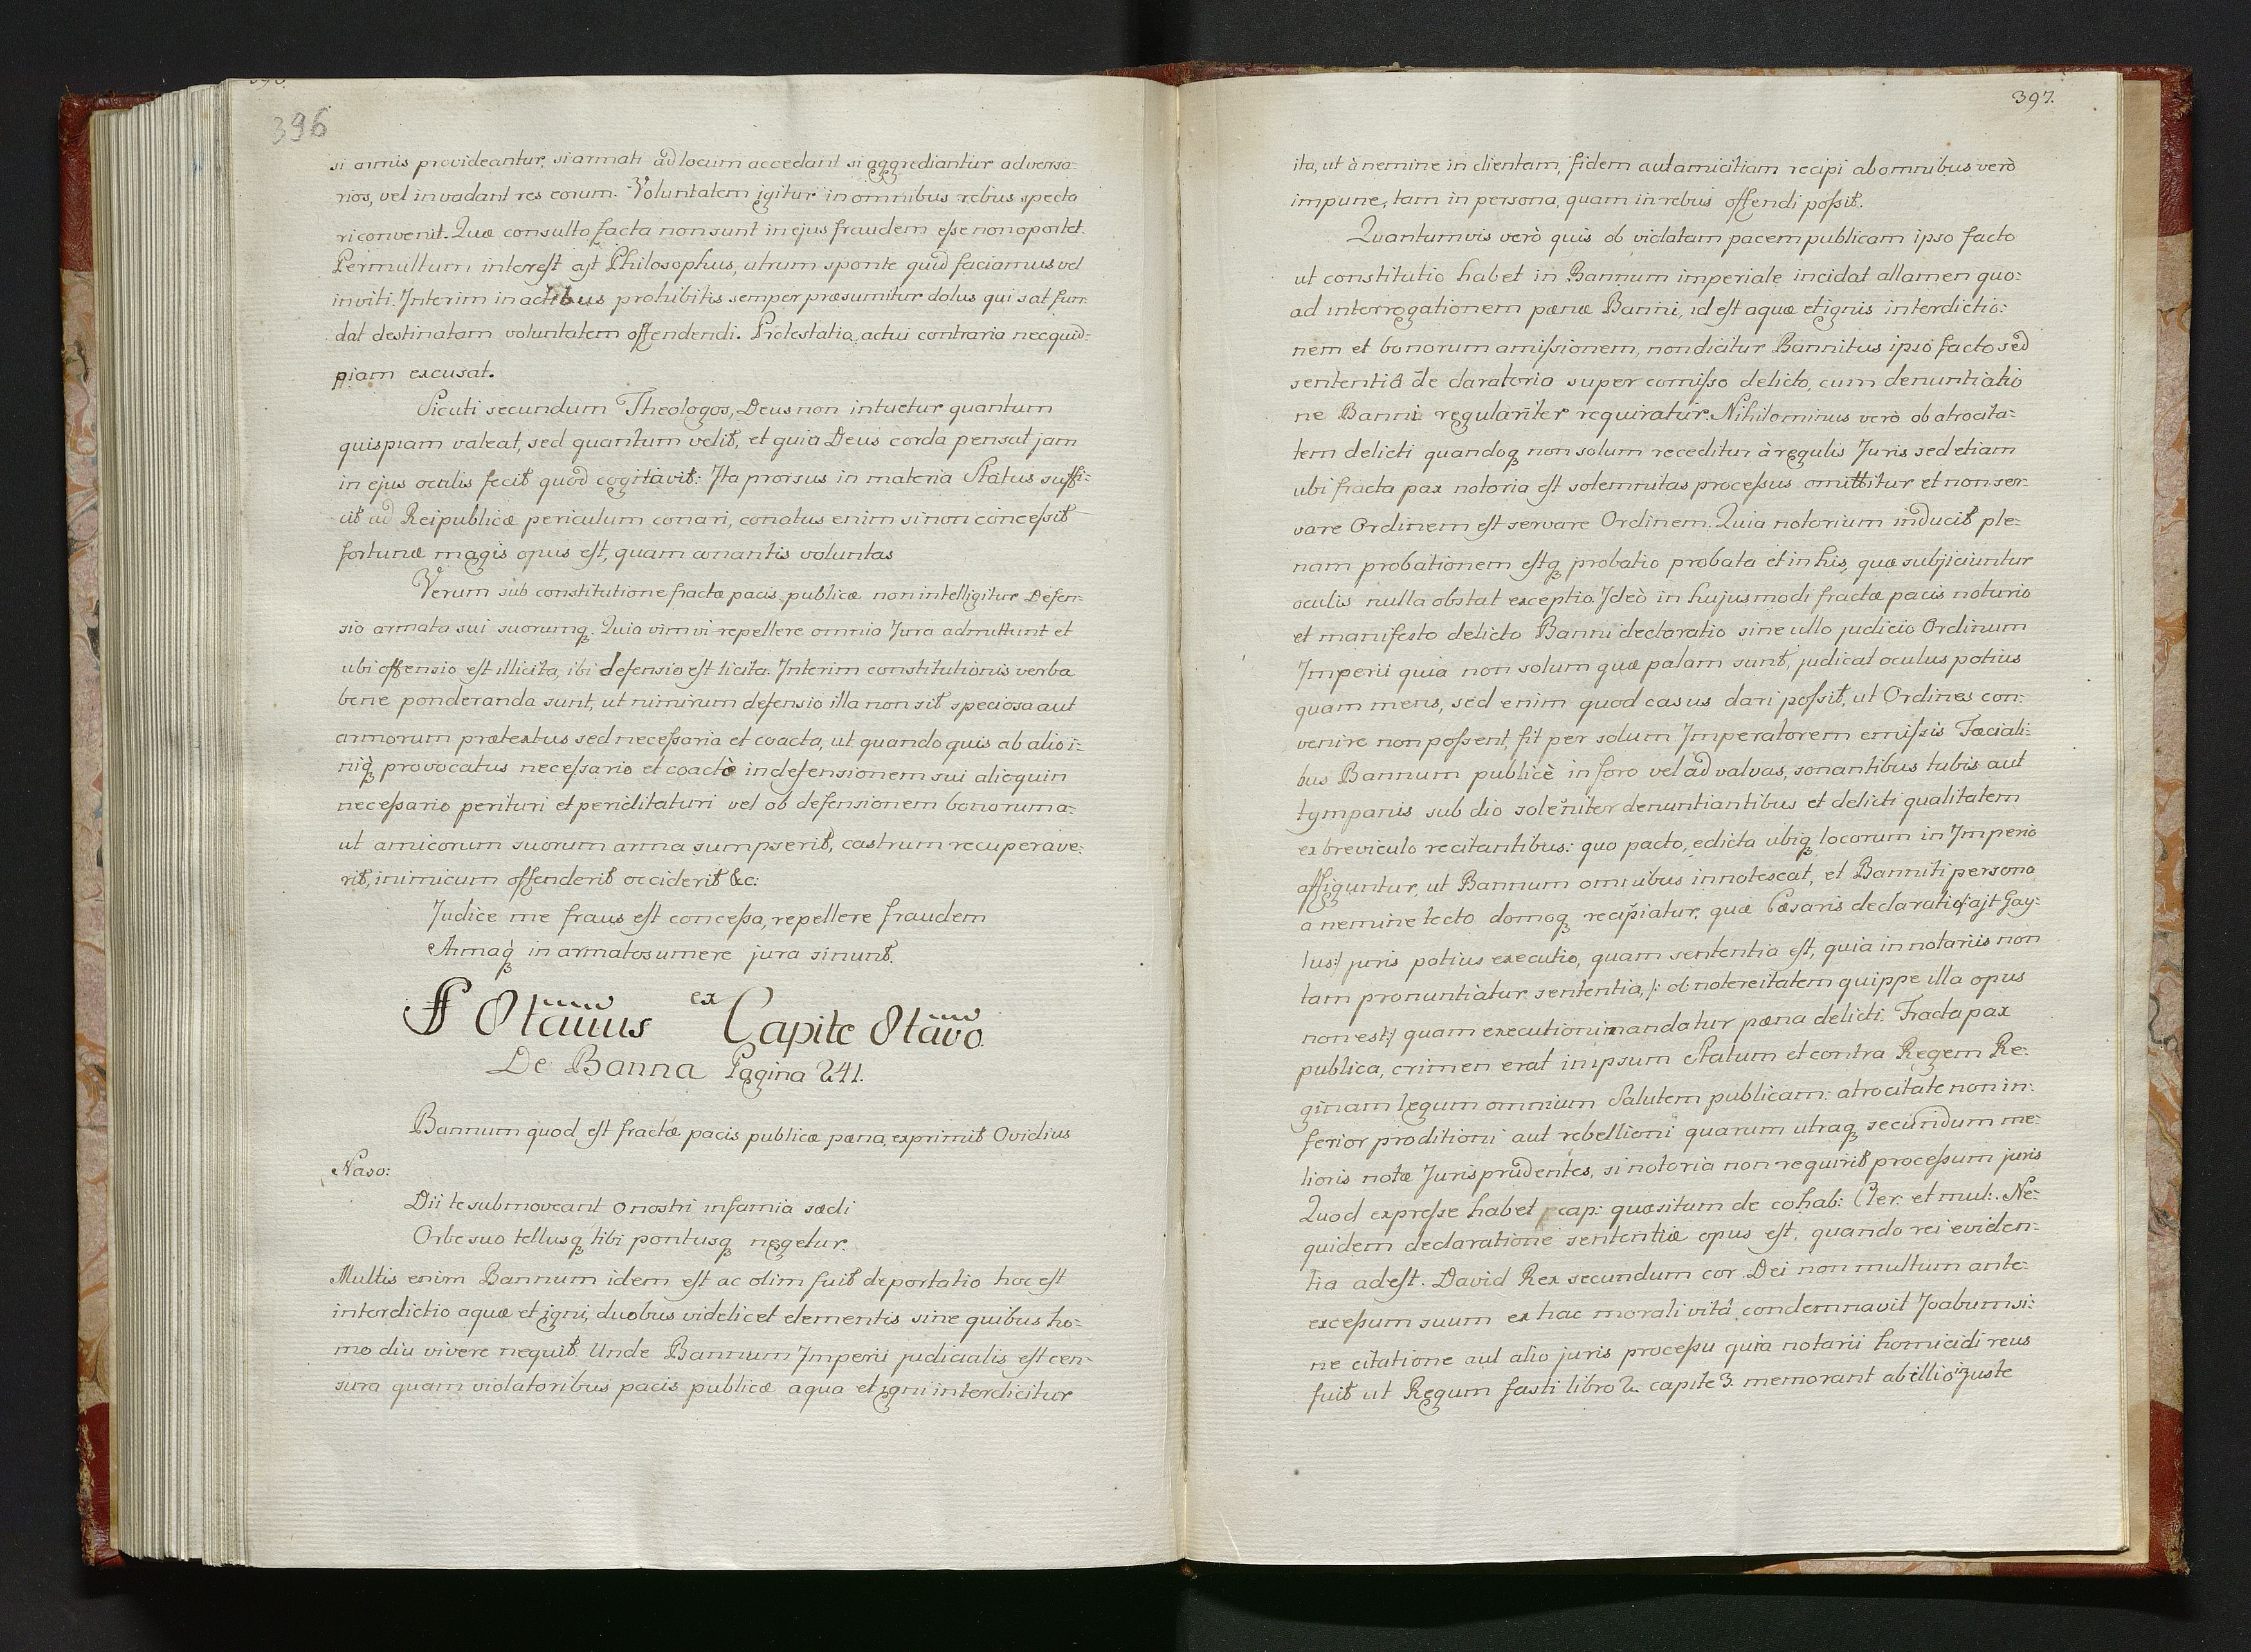 396
si armis provideantur, si armati ad locum accedant si aggrediantur adversa=
rios, vel invadant res eorum. Voluntatem igitur in omnibus rebus specta
ri convenit. Quæ consulto facta non sunt in ejus fraudem eſse non oportet.
Permultum interest ajt Philosophus, utrum sponte quid faciamus vel
inviti. Interim in actibus prohibitis semper præsumitur dolus qui sat fun
dat destinatam voluntatem offendendi. Protestatio, actui contraria nec quid=
piam excusat.
Sicuti secundum Theologos, Deus non intuetur quantum
quispiam valeat, sed quantum velit, et quia Deus corda pensat jam
in ejus oculis fecit quod cogitavit: Ita prorsus in materia Status suffi=
cit ad Reipublicæ periculum conari, conatus enim si non conceſsit
fortunæ magis opus est, quam conantis voluntas
Verum sub constitutione fractæ pacis publicæ non intelligitur Defen=
sio armata sui suorumq. Quia vim vi repellere omnia Jura admittunt et
ubi offensio est illicita, ibi defensio est licita. Interim constitutionis verba
bene ponderanda sunt, ut nimirum defensio illa non sit speciosa aut
armorum prætextus sed neceſsaria et coacta, ut quando quis ab alio i=
niq provocatus neceſsario et coactè in defensionem sui alioquin
necessario perituri et periclitaturi vel ob defensionem bonorum a=
ut amicorum suorum arma sumpserit, castrum recuperave=
rit, inimicum offenderit occiderit &c:
Judice me fraus est conceſsa, repellere fraudem
Armaq in armatos umere jura sinunt.
§ Octavus ex Capite Octavo.
De Banna Pagina 241.
Bannum quod est fractæ pacis publicæ pæna, exprimit Ovidius
Naso:
Dii te submoveant o nostri infamia sæcli
Orbe suo tellusq tibi pontusq negetur.
Multis enim Bannum idem est ac olim fuit deportatio hoc est
interdictio aquæ et igni, duobus videlicet elementis sine quibus ho=
mo diu vivere nequit. Unde Bannum Imperii judicialis est cen=
sura quam violatoribus pacis publicæ aqua et igni interdicitur
397.
ita, ut à nemine in clientam, fidem aut amicitiam recipi ab omnibus verò
impune, tam in persona, quam in rebus offendi poſsit.
Quantumvis verò quis ob violatam pacem publicam ipso facto
ut constitutio habet in Bannum imperiale incidat attamen quo=
ad interrogationem pænæ Banni, id est aquæ et ignis interdictio=
nem et bonorum amiſsionem, non dicitur Bannitus ipso facto sed
sententiâ de claratoria super comiſso delicto, cum denuntiatio
ne Banni regulariter requiratur. Nihilominus verò ob atrocita=
tem delicti quandoq non solum receditur à regulis Juris sed etiam
ubi fracta pax notoria est solemnitas proceſsus omittitur et non ser=
vare Ordinem est servare Ordinem. Quia notorium inducit ple=
nam probationem estq probatio probata et in his, quæ subjiciuntur
oculis nulla obstat exceptio. Ideò in hujusmodi fractæ pacis notorio
et manifesto delicto Banni declaratio sine ullo judicio Ordinum
Imperii quia non solum quæ palam sunt, judicat oculus potius
quam mens, sed enim quod casus dari poſsit, ut Ordines con=
venire non poſsent, fit per solum Imperatorem emiſsis Fæciali=
bus Bannum publicè in foro vel ad valvas, sonantibus tubis aut
tympanis sub dio soleniter denuntiantibus et delicti qualitatem
ex breviculo recitantibus: quo pacto, edicta ubiq locorum in Imperio
affiguntur, ut Bannum omnibus innotescat, et Banniti persona
a nemine tecto domoq recipiatur. quæ Cæsaris declaratio/: ajt Gay=
lus:/ juris potius executio, quam sententia est, quia in notariis non
tam pronuntiatur sententia, /: ob notoreitatem quippe illa opus
non est:/ quam executioni mandatur pæna delicti. Fracta pax
publica, crimen erat in ipsum Statum et contra Regem Re=
ginam legum omnium Salutem publicam: atrocitate non in=
ferior proditioni aut rebellioni quarum utraq secundum me=
lioris notæ Jurisprudentes, si notoria non requirit proceſsum juris
Quod expreſse habet cap: quæsitum de cohab: Cler: et mul:. Ne=
quidem declaratione sententiæ opus est, quando rei eviden=
tia adest. David Rex secundum cor Dei non multum ante
exceſsum suum ex hac morali vitâ condemnavit Joabum si=
ne citatione aut alio juris proceſsu quia notarii homicidi reus
fuit ut Regum fasti libro 2. capite 3. memorant ab illio injuste